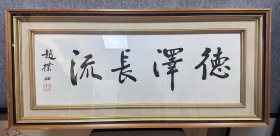 德澤長流
趙樸初